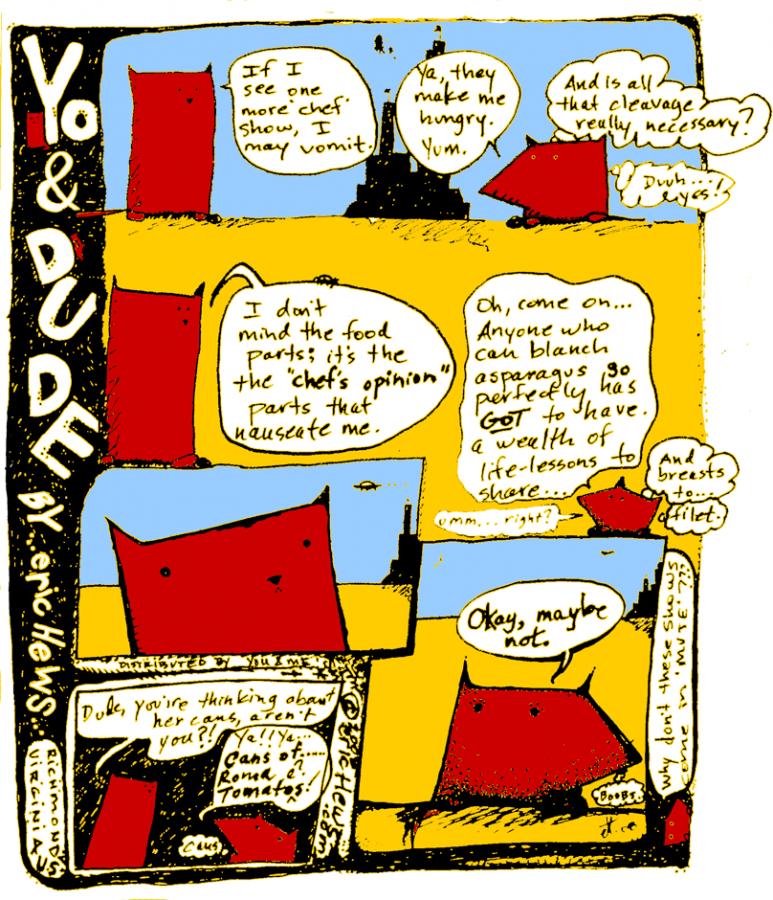 Yo
&
DUDE
BY...eric Hews...
If I
see one
more 'chef'
show, I
may vomit.
Ya, they
make me
hungry.
Yum.
And is all
that cleavage
really necessary?
Duuh...
yes!
I don't
mind the food
parts; it's the
the "chef's opinion"
parts that
nauseate me.
Oh, come on...
Anyone who
can blanch
asparagus so
perfectly has
GOT to have
a wealth of
life-lessons to
share...
umm... right?
And
breasts
to...
filet.
DISTRIBUTED BY YOU & ME
Okay, maybe
not.
BOOBS.
Why don't these shows
come in 'MUTE'???
Dude, you're thinking about
her cans, aren't
you?!
Ya!! Ya...
Cans of.....
Roma
Tomatos!
cans
RICHMOND
VIRGINIA